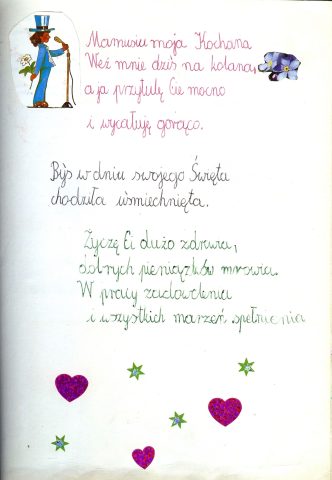 Mamusiu moja Kochana
Weź mnie dziś na kolana,
a ja przytulę Cię mocno
i wycałuję gorąco.
Byś w dniu swojego Święta
chodziła uśmiechnięta.
Życzę Ci dużo zdrowia,
dobrych pieniążków mrowia.
W pracy zadowolenia
i wszystkich marzeń spełnienia